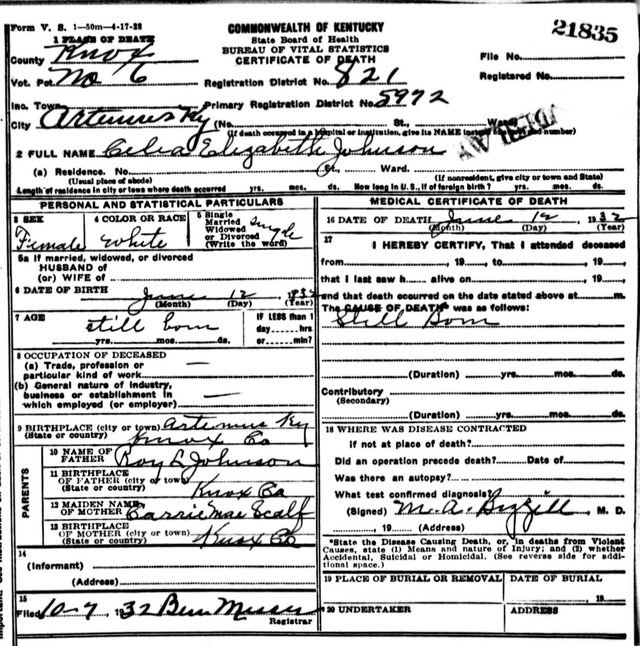 Form V. S. 1—50m—4-17-28
COMMONWEALTH OF KENTUCKY
State Board of Health
BUREAU OF VITAL STATISTICS
CERTIFICATE OF DEATH
21835
1 PLACE OF DEATH
County Knox
File No.
Vot. Pct. No 6
Registration District No. 821
Registered No.
Inc. Town
Primary Registration District No. 5972
City Artemus Ky (No. St., Ward)
(If death occurred in a hospital or institution, give its NAME instead of street and number)
2 FULL NAME Celia Elizabeth Johnson
(a) Residence. No. St., Ward.
(Usual place of abode) (If nonresident, give city or town and State)
Length of residence in city or town where death occurred yrs. mos. ds. How long in U. S., if of foreign birth? yrs. mos. ds.
PERSONAL AND STATISTICAL PARTICULARS
3 SEX Female
4 COLOR OR RACE white
5 Single Married Widowed or Divorced (Write the word) Single
5a If married, widowed, or divorced
HUSBAND of
(or) WIFE of
6 DATE OF BIRTH June 12, 1932
(Month) (Day) (Year)
7 AGE still born
yrs. mos. ds.
IF LESS than 1
day hrs
or min?
8 OCCUPATION OF DECEASED
(a) Trade, profession or
particular kind of work —
(b) General nature of industry,
business or establishment in
which employed (or employer) —
9 BIRTHPLACE (city or town) Artemus Ky
(State or country) Knox Co
PARENTS
10 NAME OF FATHER Roy L Johnson
11 BIRTHPLACE OF FATHER (city or town)
(State or country) Knox Co
12 MAIDEN NAME OF MOTHER Carrie Mae Scalf
13 BIRTHPLACE OF MOTHER (city or town)
(State or country) Knox Co
14
(Informant)
(Address)
15
Filed 10-7, 1932 Ben Messer
Registrar
MEDICAL CERTIFICATE OF DEATH
16 DATE OF DEATH June 12 1932
(Month) (Day) (Year)
17
I HEREBY CERTIFY, That I attended deceased
from , 19 , to , 19 ,
that I last saw h alive on , 19 ,
and that death occurred on the date stated above at m.
The CAUSE OF DEATH* was as follows:
Still Born
(Duration) yrs. mos. ds.
Contributory
(Secondary)
(Duration) yrs. mos. ds.
18 WHERE WAS DISEASE CONTRACTED
If not at place of death?
Did an operation precede death? Date of
Was there an autopsy?
What test confirmed diagnosis?
(Signed) M. A. , M. D.
, 19 (Address)
*State the Disease Causing Death, or, in deaths from Violent
Causes, state (1) Means and nature of Injury; and (2) whether
Accidental, Suicidal or Homicidal. (See reverse side for addi-
tional space.)
19 PLACE OF BURIAL OR REMOVAL
DATE OF BURIAL
19
20 UNDERTAKER
ADDRESS